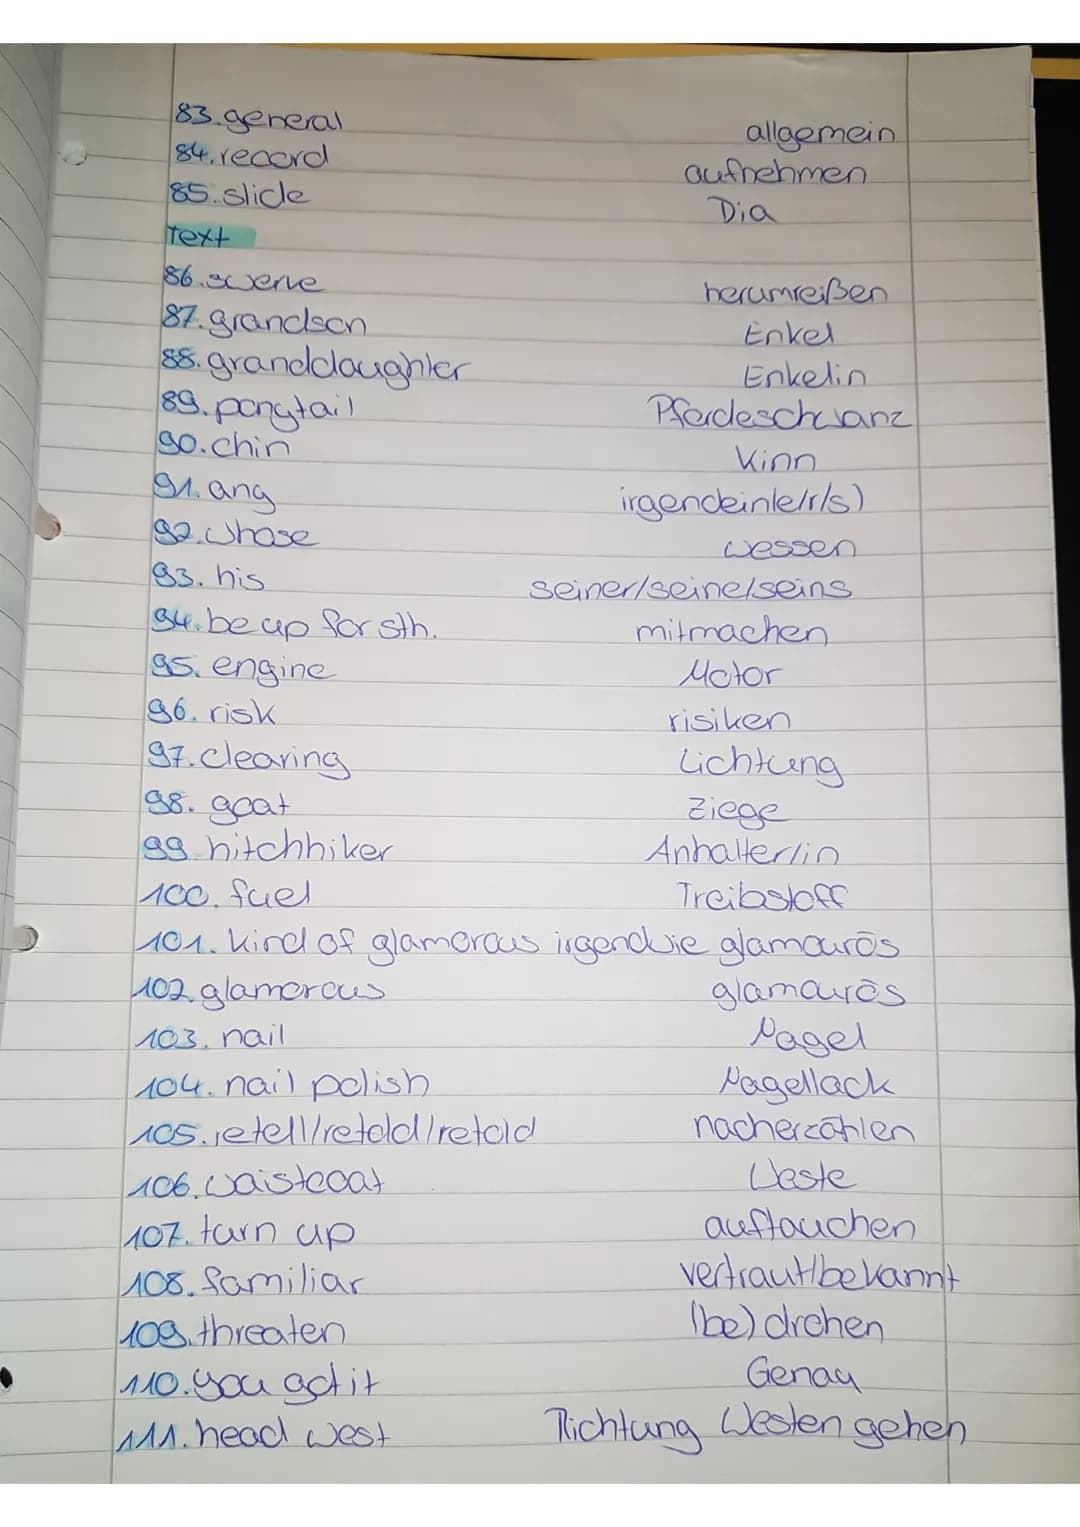 83. general allgemein
84. record aufnehmen
85. slide Dia
Text
86. swerve herumreißen
87. grandson Enkel
88. granddaughter Enkelin
89. ponytail Pferdeschwanz
90. chin Kinn
91. any irgendein(e/r/s)
92. whose wessen
93. his seiner/seine/seins
94. be up for sth. mitmachen
95. engine Motor
96. risk risiken
97. clearing Lichtung
98. goat Ziege
99. hitchhiker Anhalter/in
100. fuel Treibstoff
101. kind of glamorous irgendwie glamourös
102. glamorous glamourös
103. nail Nagel
104. nail polish Nagellack
105. retell/retold/retold nacherzählen
106. waistcoat Weste
107. turn up auftauchen
108. familiar vertraut/bekannt
109. threaten (be)drohen
110. you got it Genau
111. head west Richtung Westen gehen